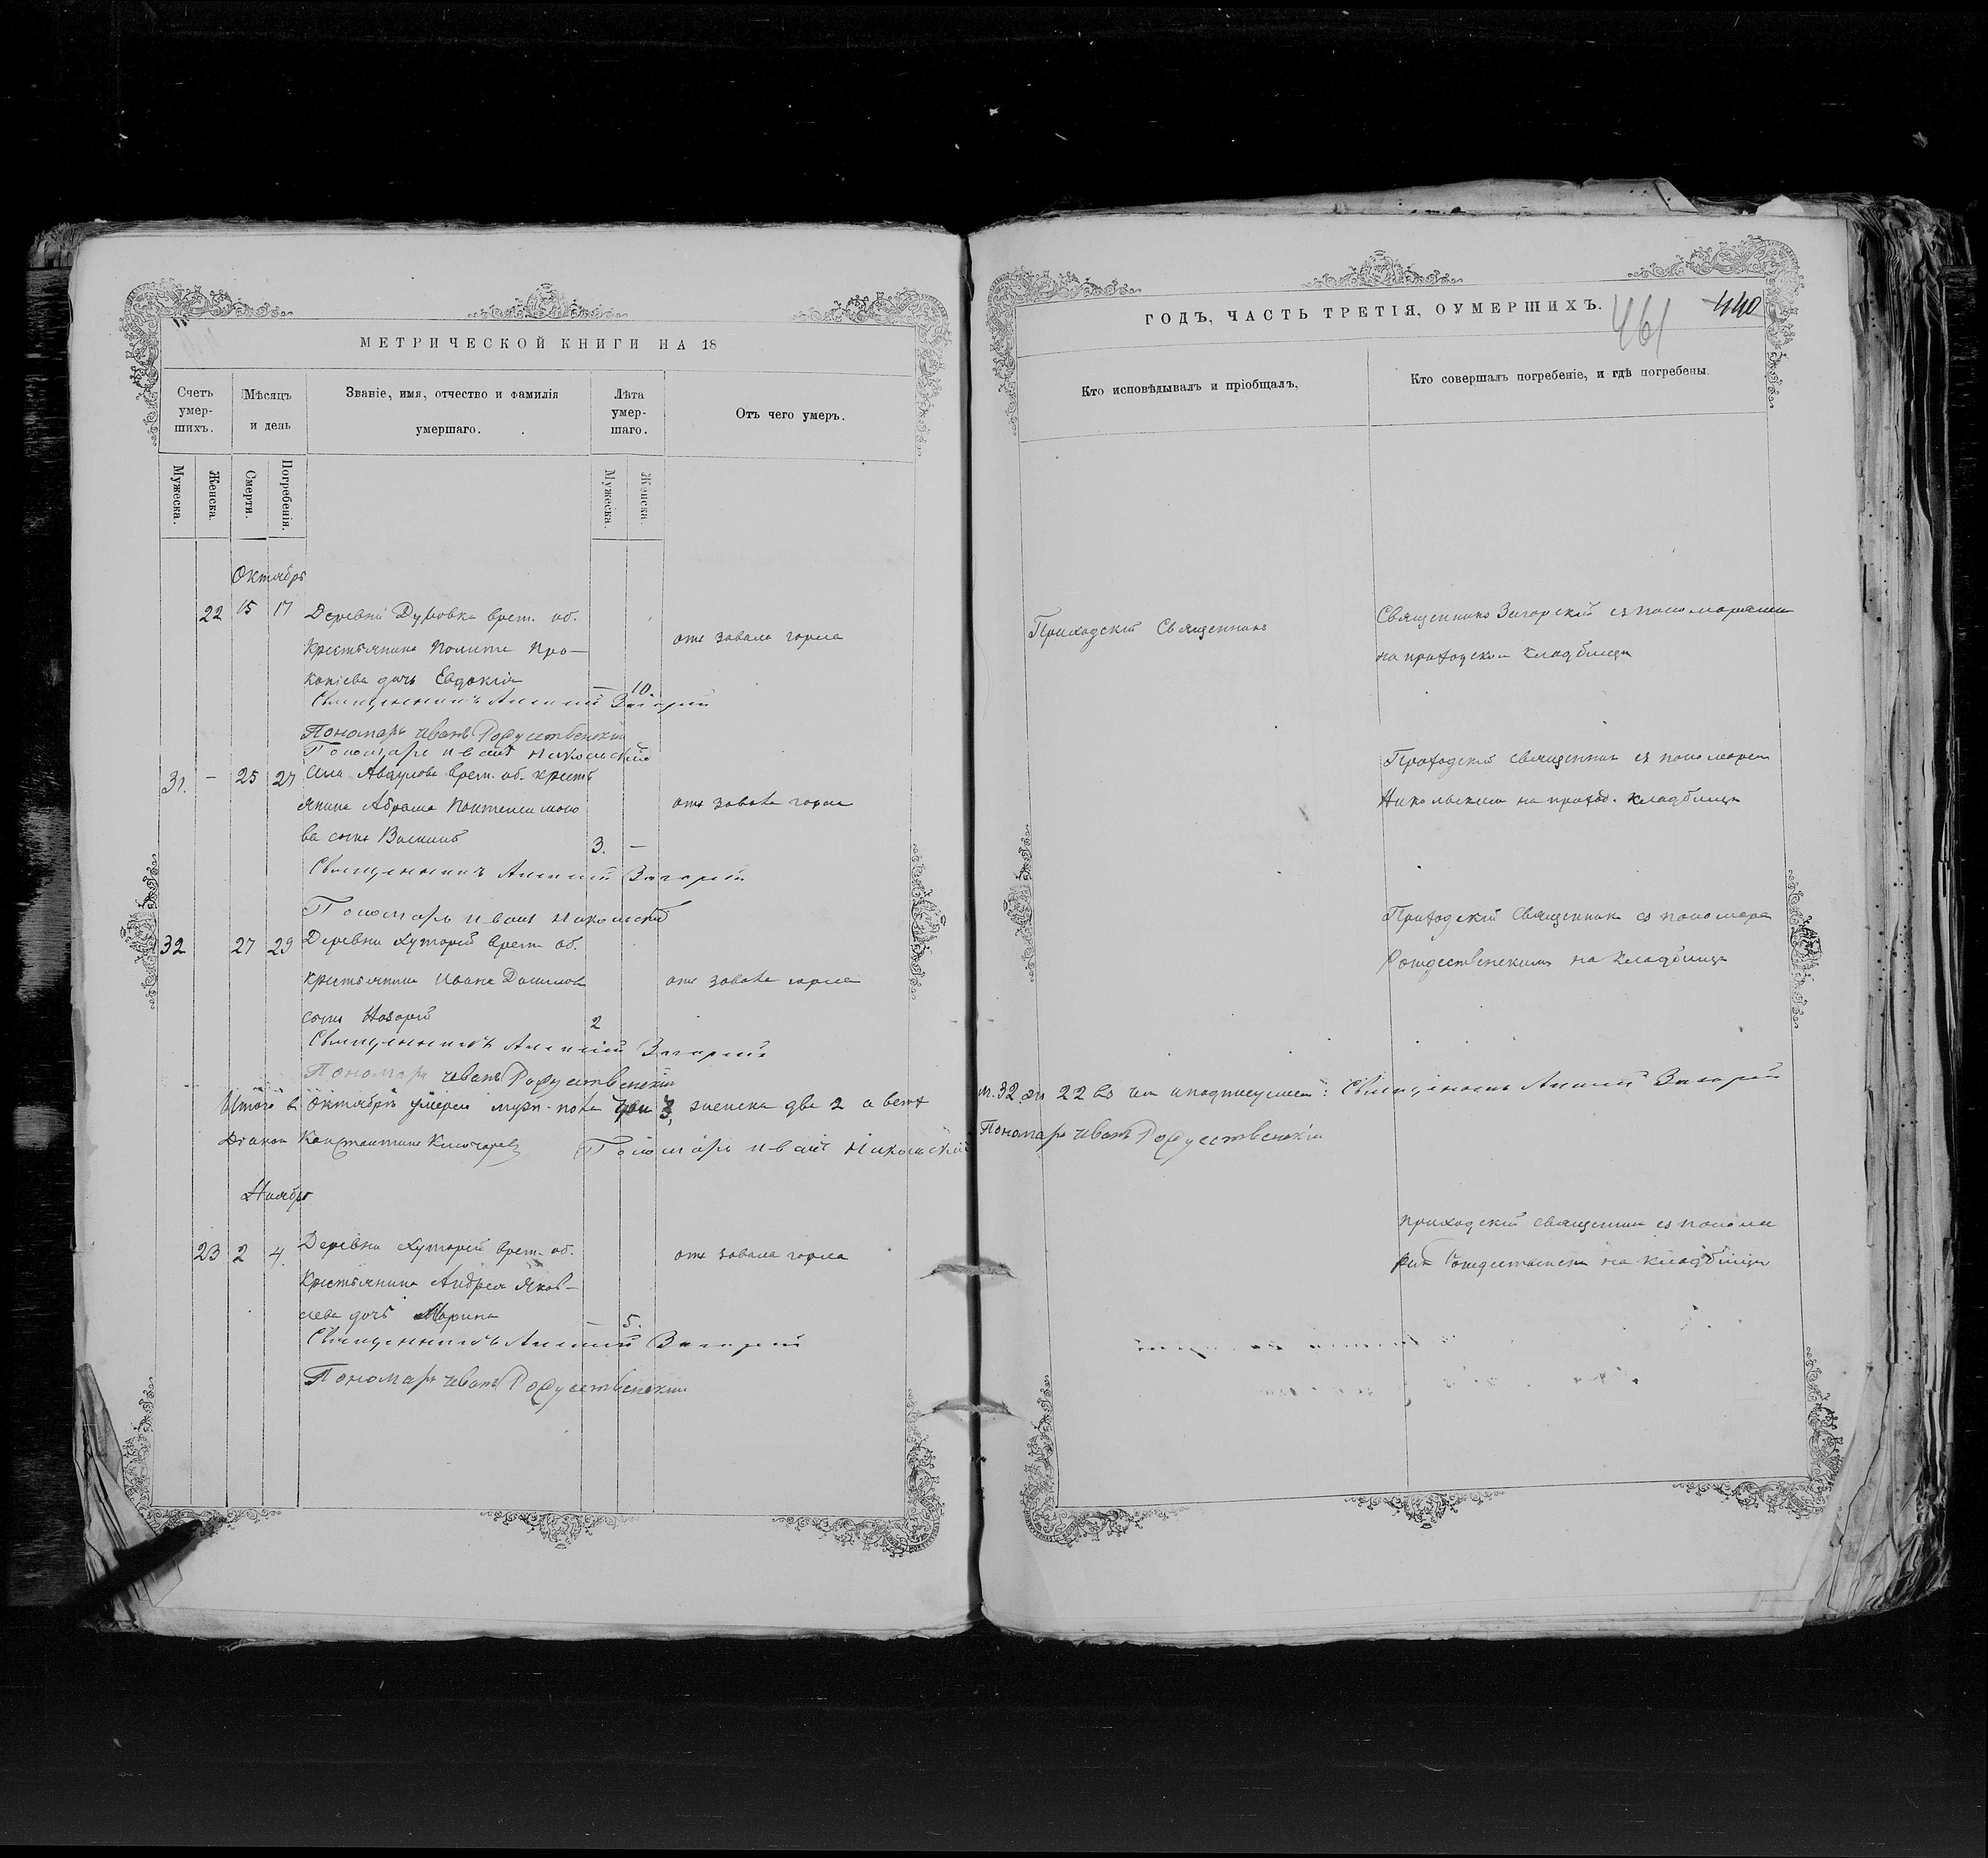 МЕТРИЧЕСКОЙ КНИГИ НА 18
Счетъ умер-шихъ.
Мѣсяцъ и день
Званіе, имя, отчество и фамилія умершаго.
Лѣта умер-шаго.
Отъ чего умеръ.
Мужеска.
Женска.
Смерти.
Погребенія.
Мужеска.
Женска.
Октябрь
22 15 17 Деревни врем. об.
отъ завала горла
крестьянина Про-
копіева дочь Евдокія
10.
Священникъ Алексій
Пономарь Иванъ Рождественскій
Пономарь Иванъ Никольскій
31. – 25 27 Села врем. об. кресть
янина Абрама Пантелимоно
отъ завала горла
ва сынъ
3. –
Священникъ Алексій
Пономарь Иванъ Никольскій
32 27 29 Деревни Хуторей врем. об.
крестьянина Ивана
отъ завала горла
сынъ Назарій
2
Священникъ Алексій
Пономарь Иванъ Рождественскій
Итого в Октябрѣ умерло муж. пола три 3, женска два 2 а всего
Діаконъ Константинъ Ключаревъ Пономарь Иванъ Никольскій
Ноябрь
23 2 4. Деревни Хуторей врем. об.
отъ завала горла
крестьянина Андрея Яков-
лева дочь Марина
– 5.
Священникъ Алексій
Пономарь Иванъ Рождественскій
ГОДЪ, ЧАСТЬ ТРЕТІЯ, ОУМЕРШИХЪ.
461 440
Кто исповѣдывалъ и пріобщалъ,
Кто совершалъ погребеніе, и гдѣ погребены.
Приходскій Священникъ
Священникъ съ пономарями
на приходском кладбищѣ
Приходскій священник съ пономарем
Никольским на приход. кладбищѣ
Приходскій Священник съ пономаре
Рождественскимъ на кладбищѣ
м. 32 ж. 22 въ чем и подписуемся: Священникъ Алексій
Пономарь Иванъ Рождественскій
приходскій священник съ понома
рем на кладбищѣ